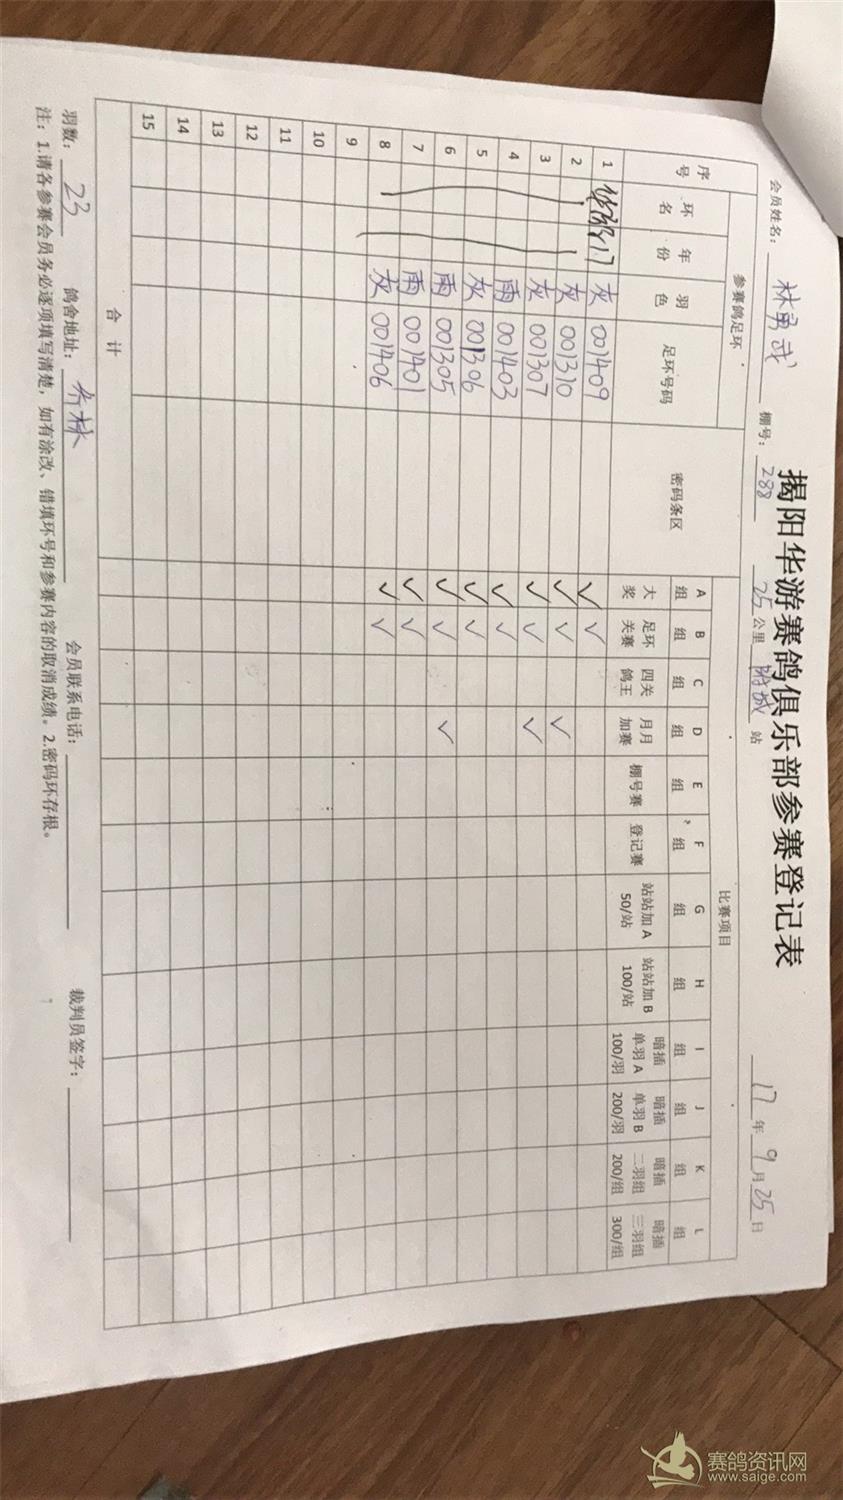 揭阳华游赛鸽俱乐部参赛登记表
会员姓名: 林勇武 棚号: 288 25 公里 附城 站 17 年 9 月 25 日
序号 参赛鸽足环 密码条区 比赛项目
环名 年份 羽色 足环号码 A组 B组 C组 D组 E组 F组 G组 H组 I组 J组 K组 L组
大奖 足环关赛 四关鸽王 月月加赛 棚号赛 登记赛 站站加A 50/站 站站加B 100/站 暗插单羽A 100/羽 暗插单羽B 200/羽 暗插二羽组 200/组 暗插三羽组 300/组
1 17 灰 001409 ✓ ✓
2 灰 001310 ✓ ✓ ✓
3 灰 001307 ✓ ✓ ✓
4 雨 001403 ✓ ✓
5 灰 001306 ✓ ✓
6 雨 001305 ✓ ✓ ✓
7 雨 001401 ✓ ✓
8 灰 001406 ✓ ✓
9
10
11
12
13
14
15
合计
羽数: 23 鸽舍地址: 乔林 会员联系电话: 裁判员签字:
注: 1.请各参赛会员务必逐项填写清楚，如有涂改、错填环号和参赛内容的取消成绩。2.密码环存根。
赛鸽资讯网
www.saige.com